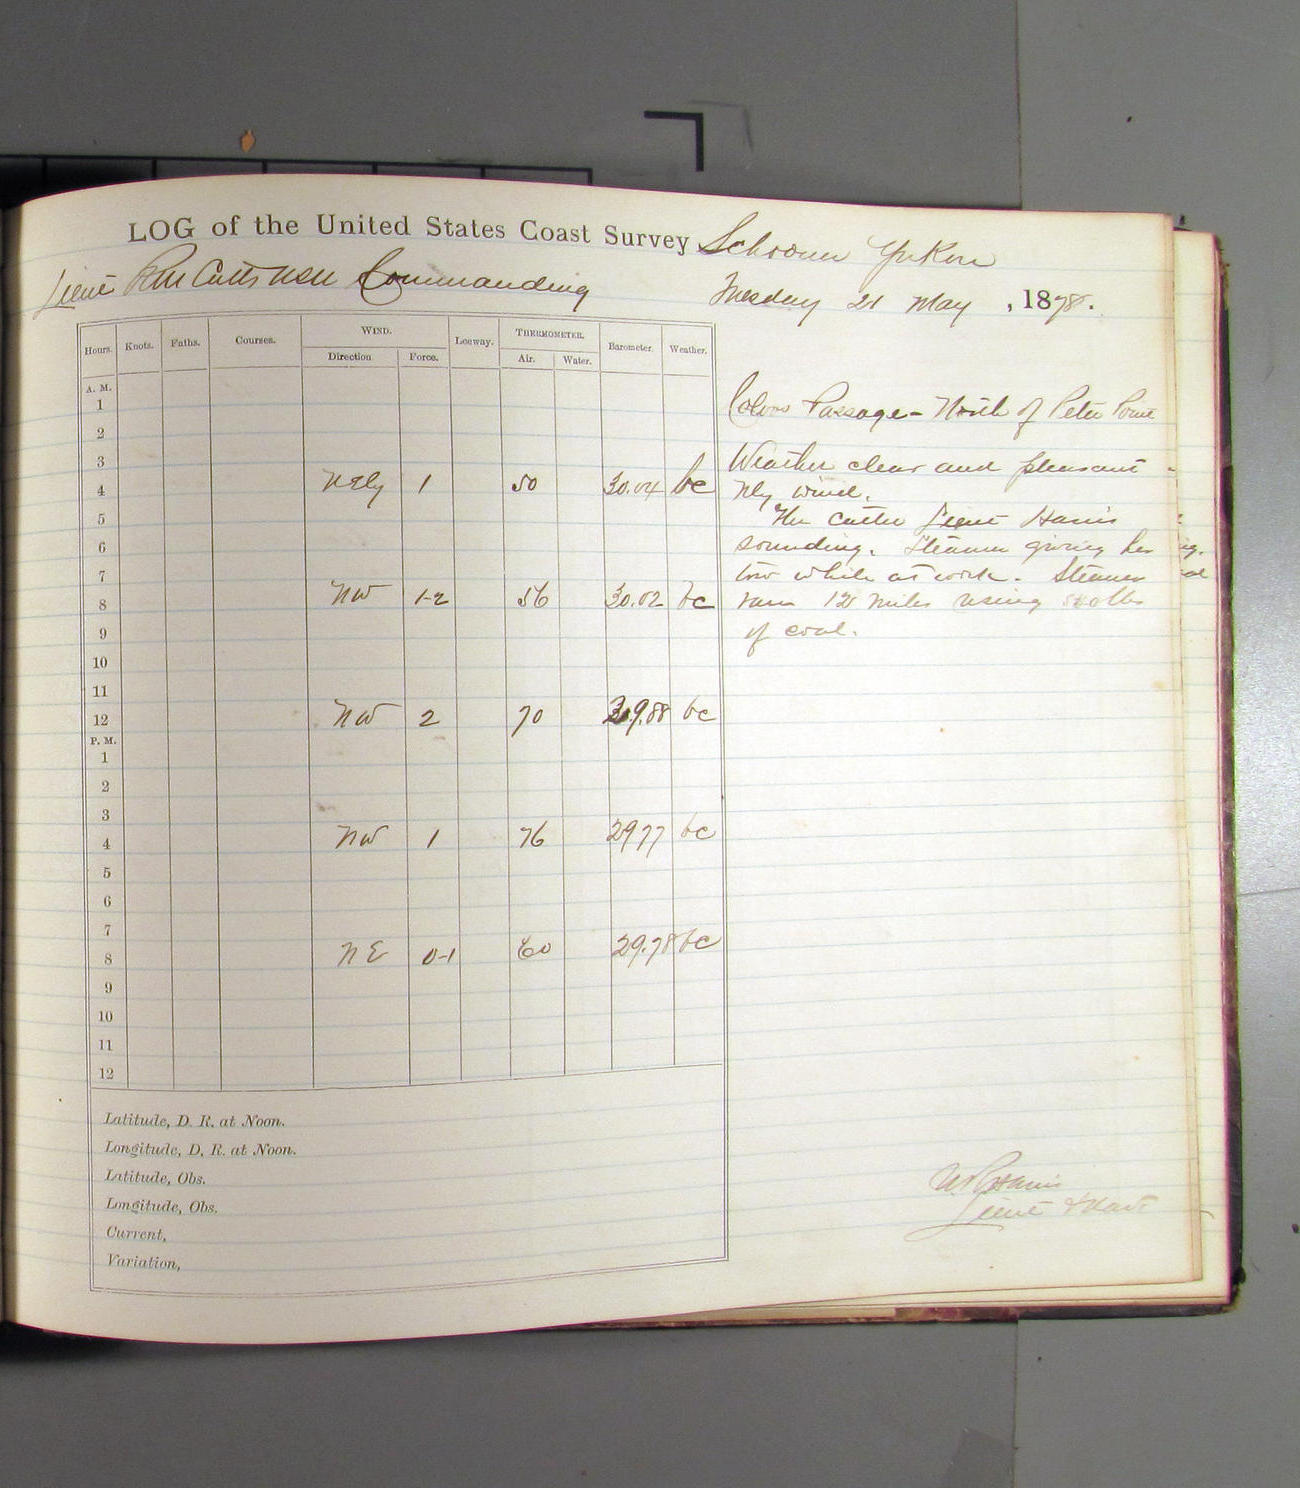 LOG of the United States Coast Survey Schooner Yukon
Lieut R M Cutts USN Commanding
Tuesday 21 May , 1878.
Hours. Knots. Faths. Courses. WIND. Leeway. THERMOMETER. Barometer. Weather.
Direction Force. Air. Water.
A. M.
1
2
3
4 NEly 1 50 30.04 bc
5
6
7
8 NW 1-2 56 30.02 bc
9
10
11
12 NW 2 70 29.88 bc
P. M.
1
2
3
4 NW 1 76 29 77 bc
5
6
7
8 NE 0-1 60 29.78 bc
9
10
11
12
Latitude, D. R. at Noon.
Longitude, D. R. at Noon.
Latitude, Obs.
Longitude, Obs.
Current,
Variation,
Colvos Passage - North of Peter Point
Weather clear and pleasant
Nly wind.
The cutter Lieut Harris
sounding. Steamer giving her
tow while at work. Steamer
ran 12 miles using lbs
of coal.
Harris
Lieut